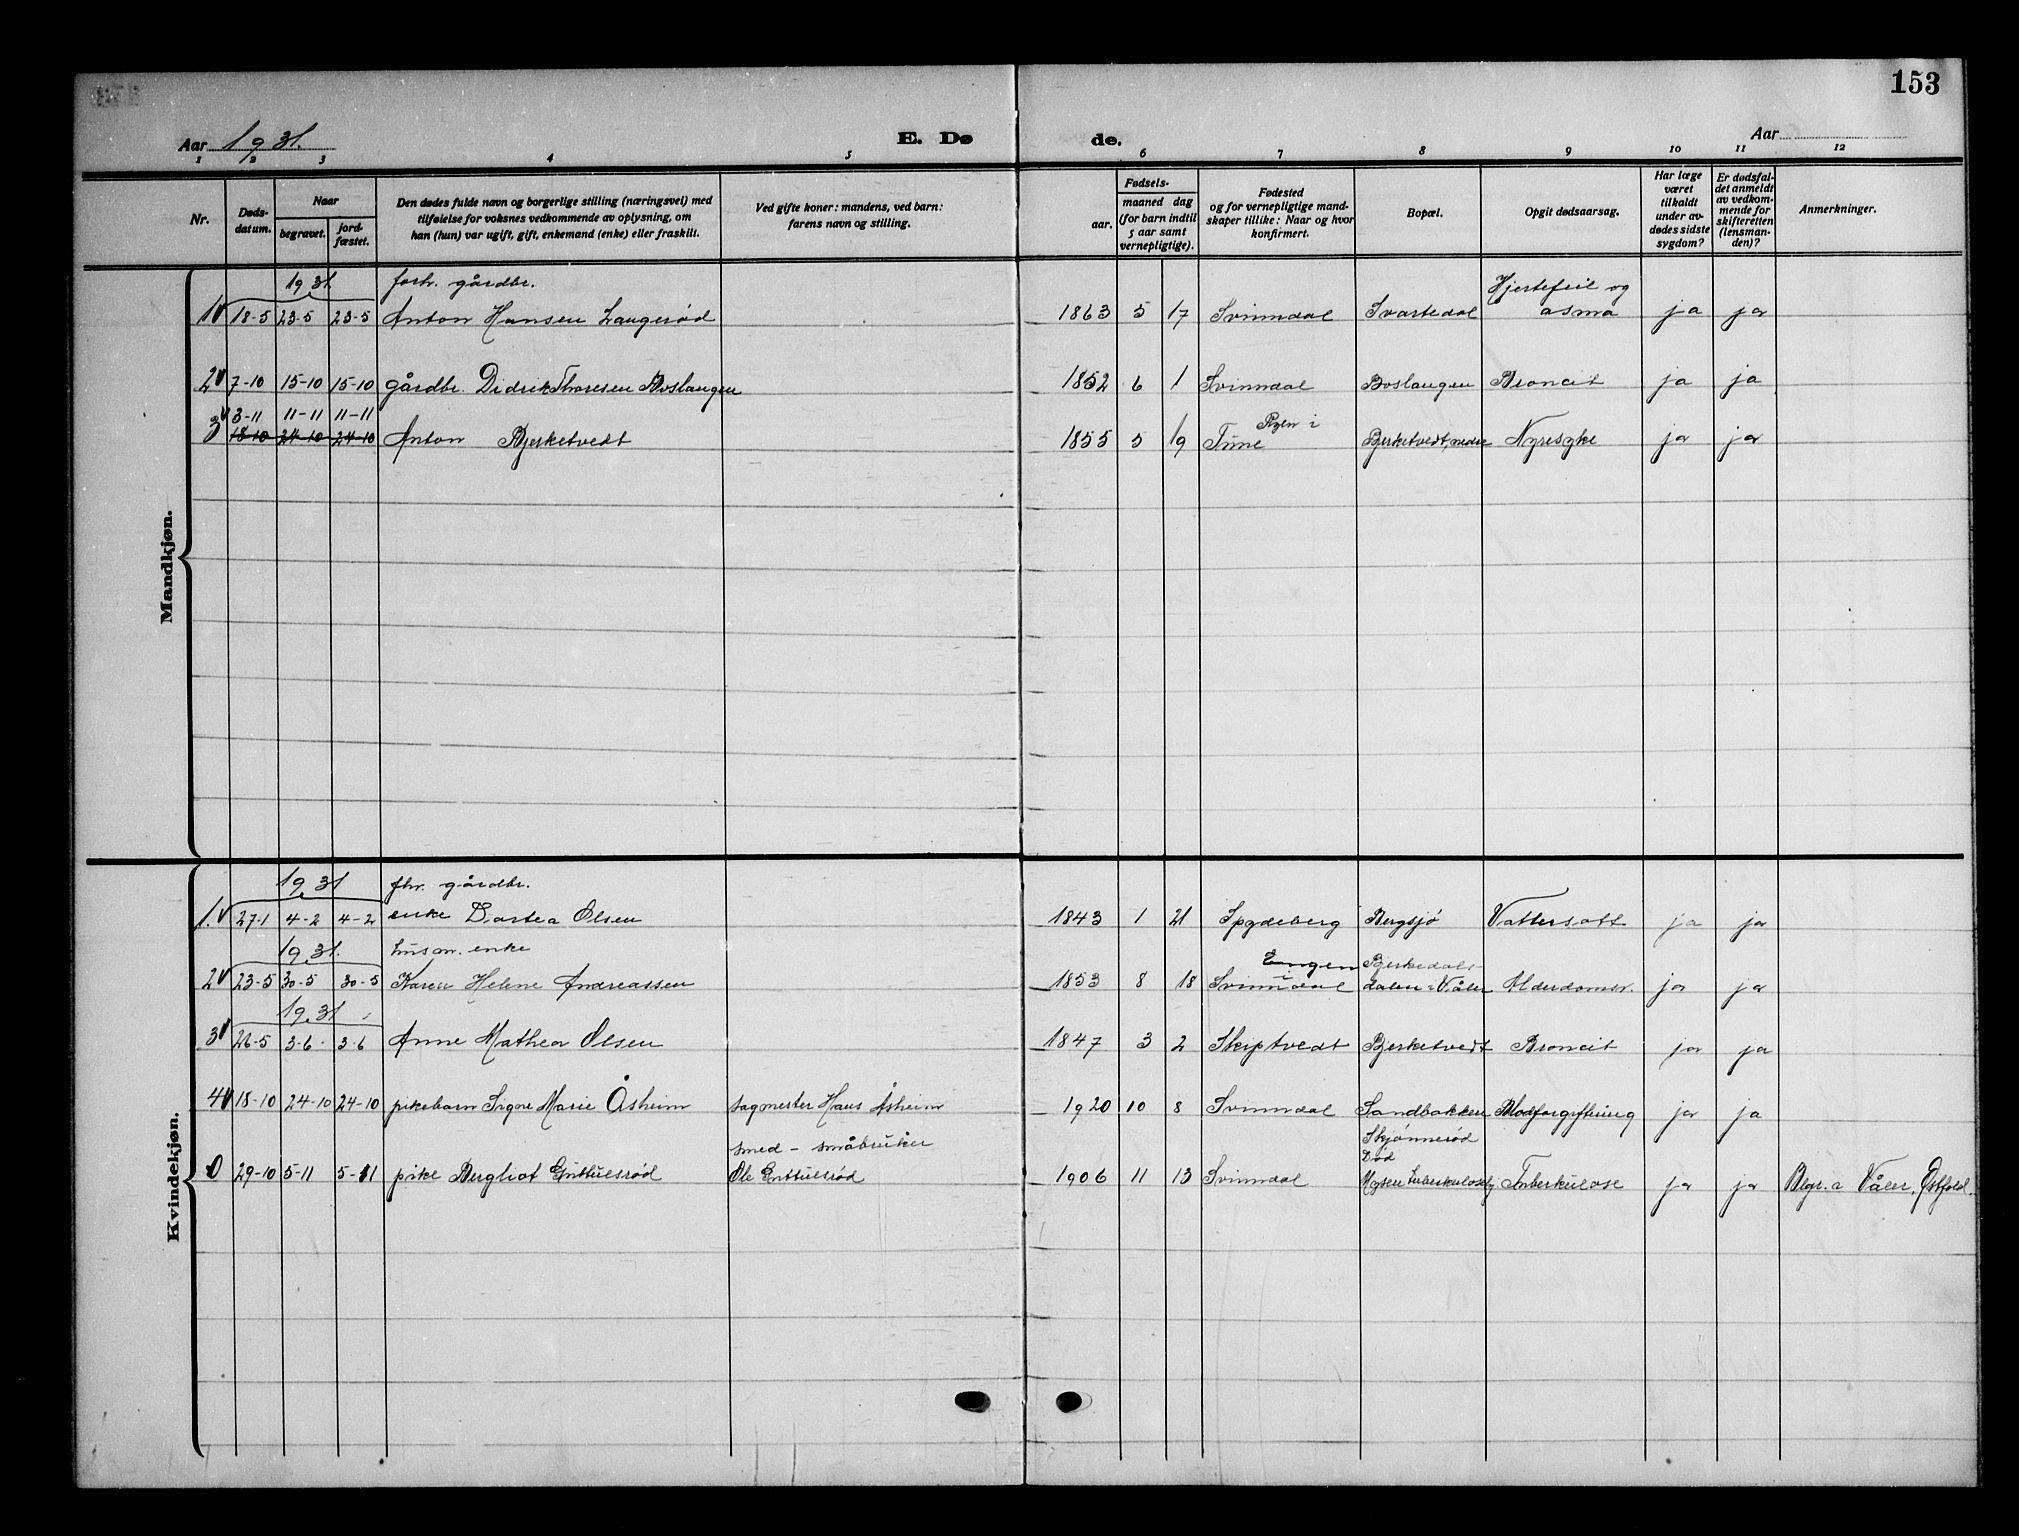 153
Aar 1931. E. Dø de. Aar
1 2 3 4 5 6 7 8 9 10 11 12
Nr.
Døds-
datum.
Naar
begravet.
jord-
fæstet.
Den dødes fulde navn og borgerlige stilling (næringsvei) med
tilføielse for voksnes vedkommende av oplysning, om
han (hun) var ugift, gift, enkemand (enke) eller fraskilt.
Ved gifte koner: mandens, ved barn:
farens navn og stilling.
Fødsels-
aar. maaned dag
(for barn indtil
5 aar samt
vernepligtige).
Fødested
og for vernepligtige mand-
skaper tillike: Naar og hvor
konfirmert.
Bopæl.
Opgit dødsaarsag.
Har læge
været
tilkaldt
under av-
dødes sidste
sygdom?
Er dødsfal-
det anmeldt
av vedkom-
mende for
skifteretten
(lensman-
den)?
Anmerkninger.
Mandkjøn.
1931 forh. gårdbr. Hjertefeil og
1 18-5 23-5 23-5 Anton Hansen Langerød 1863 5 17 Svinndal Svartedal asma ja ja
2 7-10 15-10 15-10 gårdbr. Didrik Thoresen Boslangen 1852 6 1 Svinndal Boslangen Broncit ja ja
3-11 11-11 11-11 Ryen i
3 18-10 24-10 24-10 Anton Bjerketvedt 1855 5 19 Tune Bjerketvedt, nedre Nyresyke ja ja
Kvindekjøn.
1931 fhv. gårdbr.
1. 27-1 4-2 4-2 enke Dortea Olsen 1843 1 21 Spydeberg Bergsjø Vattersott ja ja
1931. husm. enke Engen i Bjerkedals-
2 23-5 30-5 30-5 Karen Helene Andreassen 1853 8 18 Svinndal dalen i Våler Alderdomsv. ja ja
1931
3 26-5 3-6 3-6 Anne Mathea Olsen 1847 3 2 Skiptvedt Bjerketvedt Broncit ja ja
4 18-10 24-10 24-10 pikebarn Signe Marie Åsheim sagmester Hans Åsheim 1920 10 8 Svinndal Sandbakken Blodforgiftning ja ja
smed - småbruker Skjønnerød
Død
0 29-10 5-11 5-11 pike Bergliot Guttulsrød Ole Guttulsrød 1906 11 13 Svinndal Mysen tuberkulosehj Tuberkulose ja ja Begr. i Våler, Østfold.